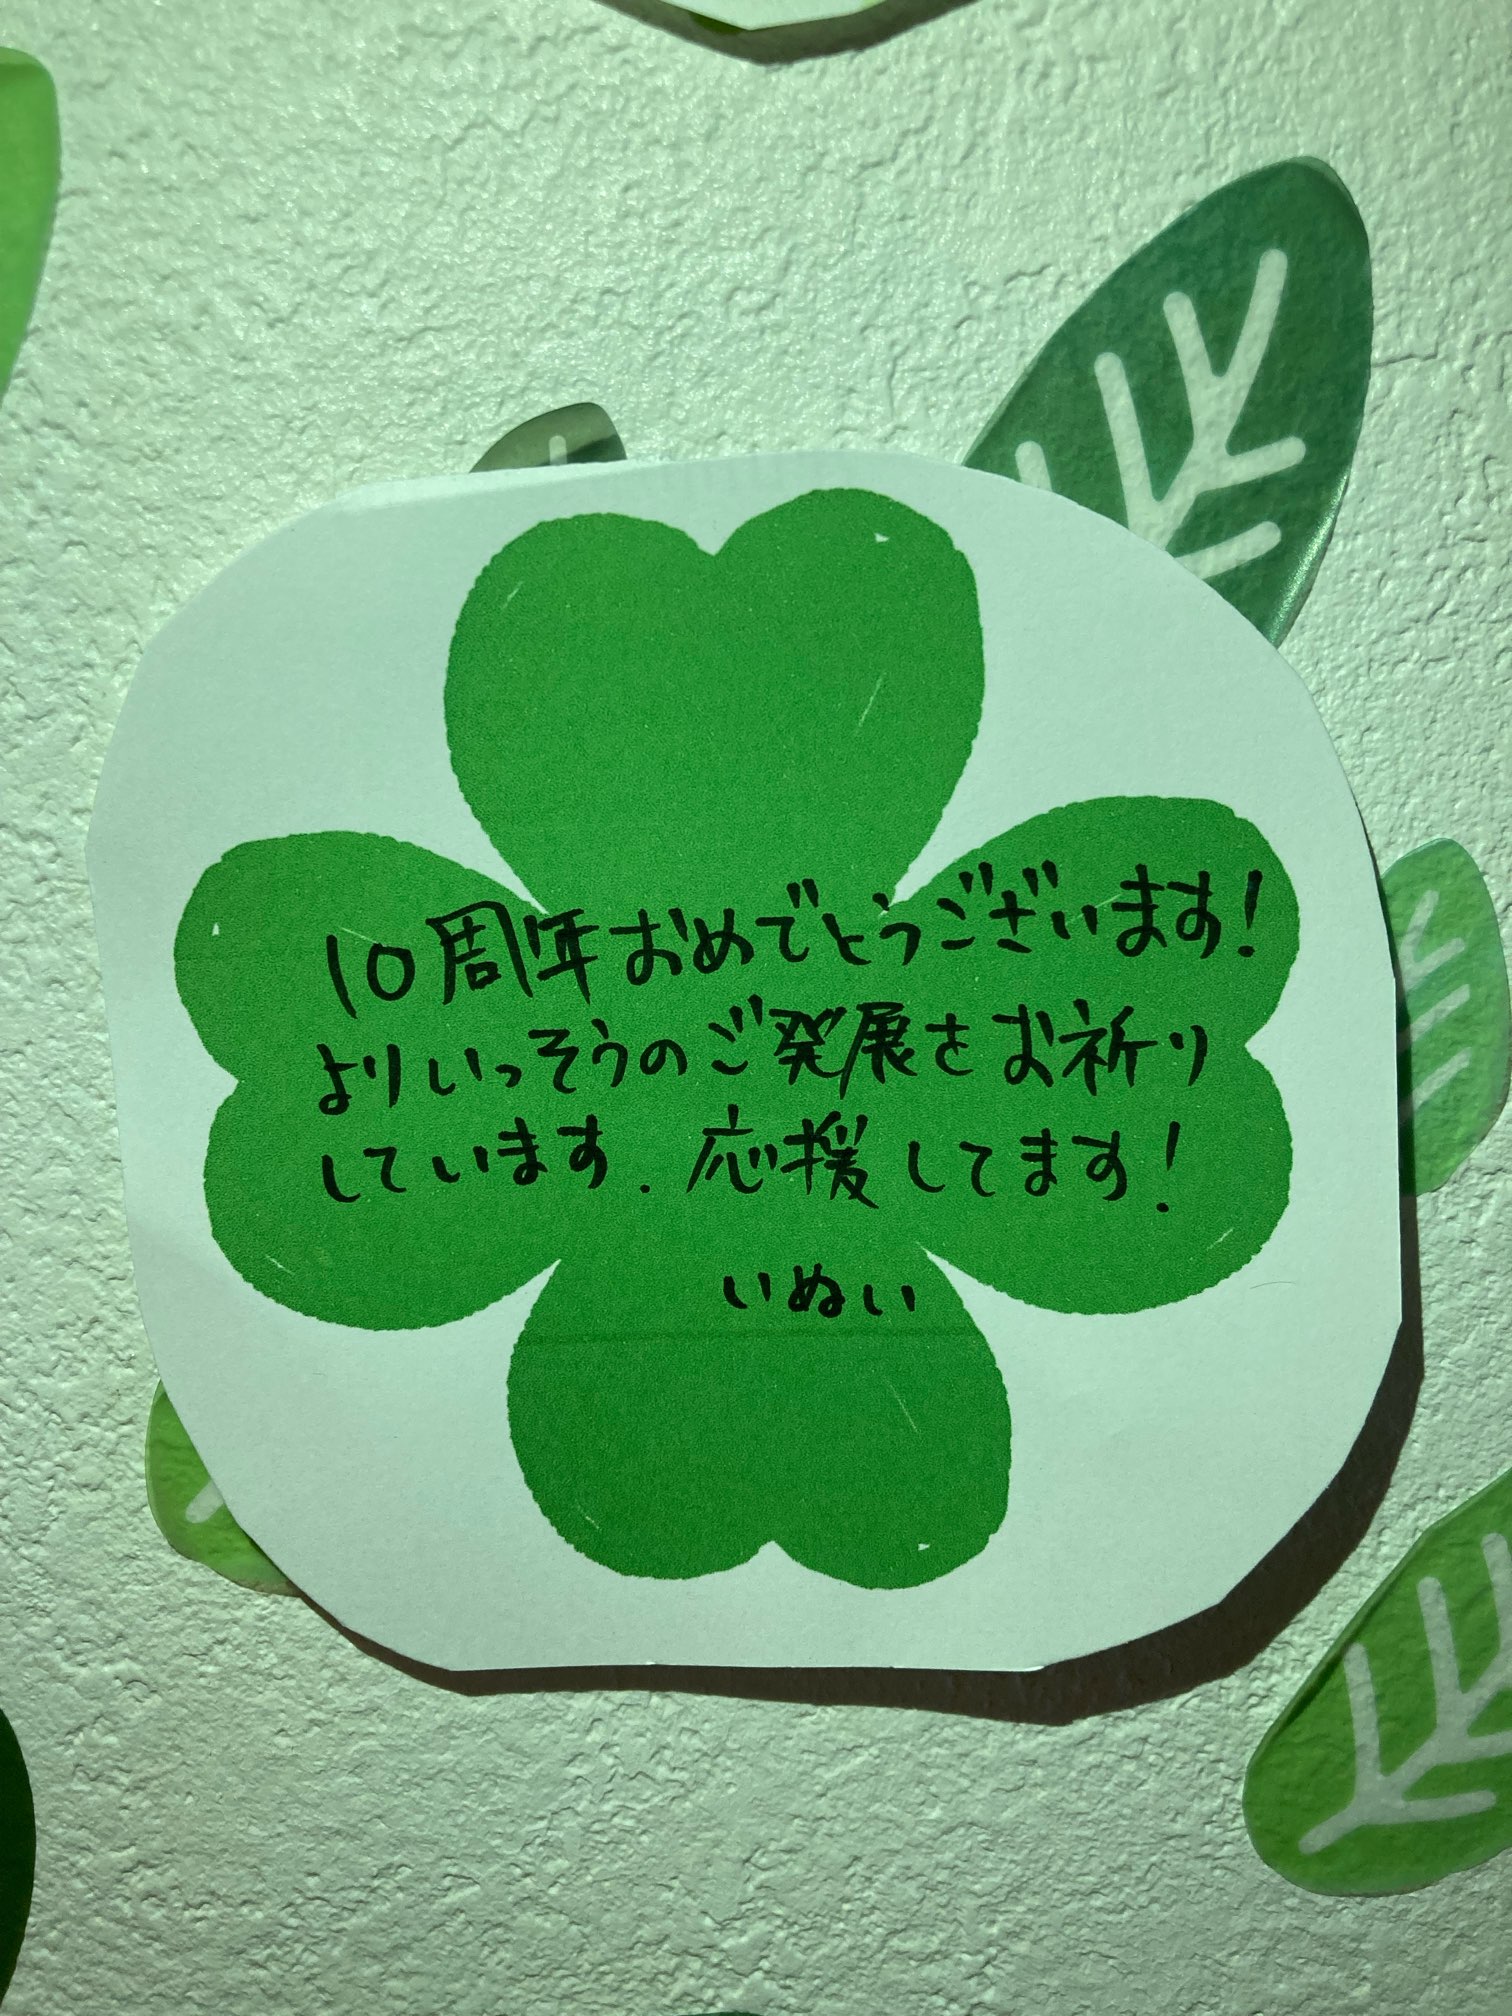 10周年おめでとうございます!
よりいっそうのご発展をお祈り
しています. 応援してます!
いぬい